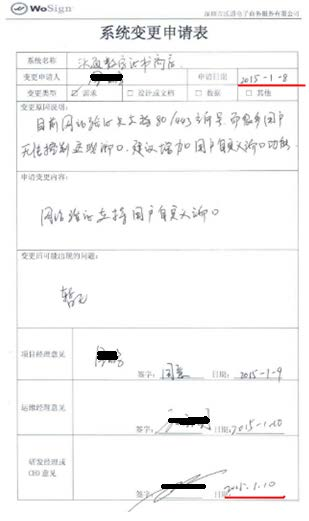 WoSign
深圳市沃通电子商务服务有限公司
系统变更申请表
系统名称 沃通数字证书商店
变更申请人 申请日期 2015-1-8
变更类型 需求 设计或文档 数据 其他
变更原因说明:
目前网站验证只支持80/443端口号,而很多用户
无法控制这些端口,建议增加用户自定义端口功能.
申请变更内容:
网站验证支持用户自定义端口
变更后可能出现的问题:
暂无
项目经理意见
签字: 日期: 2015-1-9
运维经理意见
签字: 日期: 2015-1-10
研发经理或
CEO意见
签字: 日期: 2015.1.10